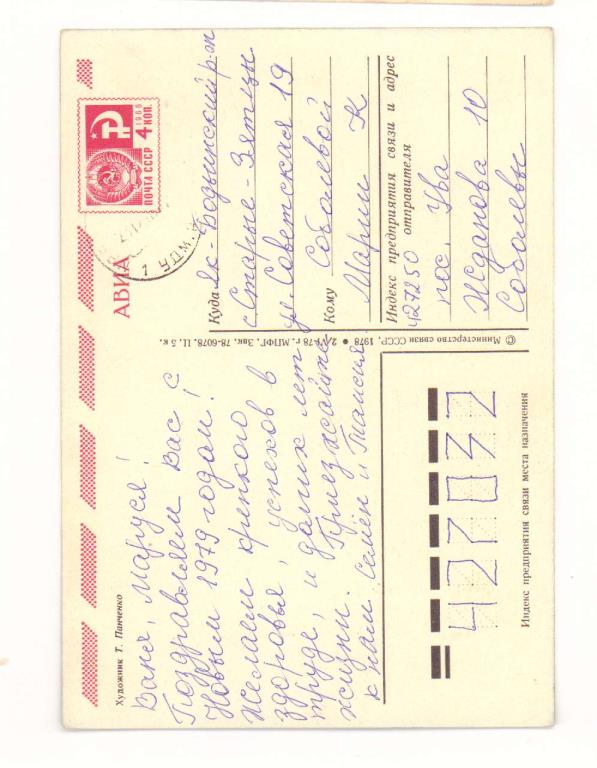 Художник Т. Панченко
Ваня, Маруся!
Поздравляем Вас с
Новым 1979 годом!
Желаем крепкого
здоровья, успехов в
труде, и долгих лет
жизни. Приезжайте
к нам. Семён и Таисия
© Министерство связи СССР, 1978 • 2/VI-78 г. МПФГ. Зак. 78-6078. Ц. 5 к.
АВИА
ПОЧТА СССР 4 КОП.
1966
УДМ.
Куда Як-Бодьинский р-н
с Старые-Зятцы
ул. Советская 19
Кому Соболевой
Марии К
Индекс предприятия связи и адрес
отправителя
427250
пос. Ува
Жданова 10
Соболевы
427032
Индекс предприятия связи места назначения